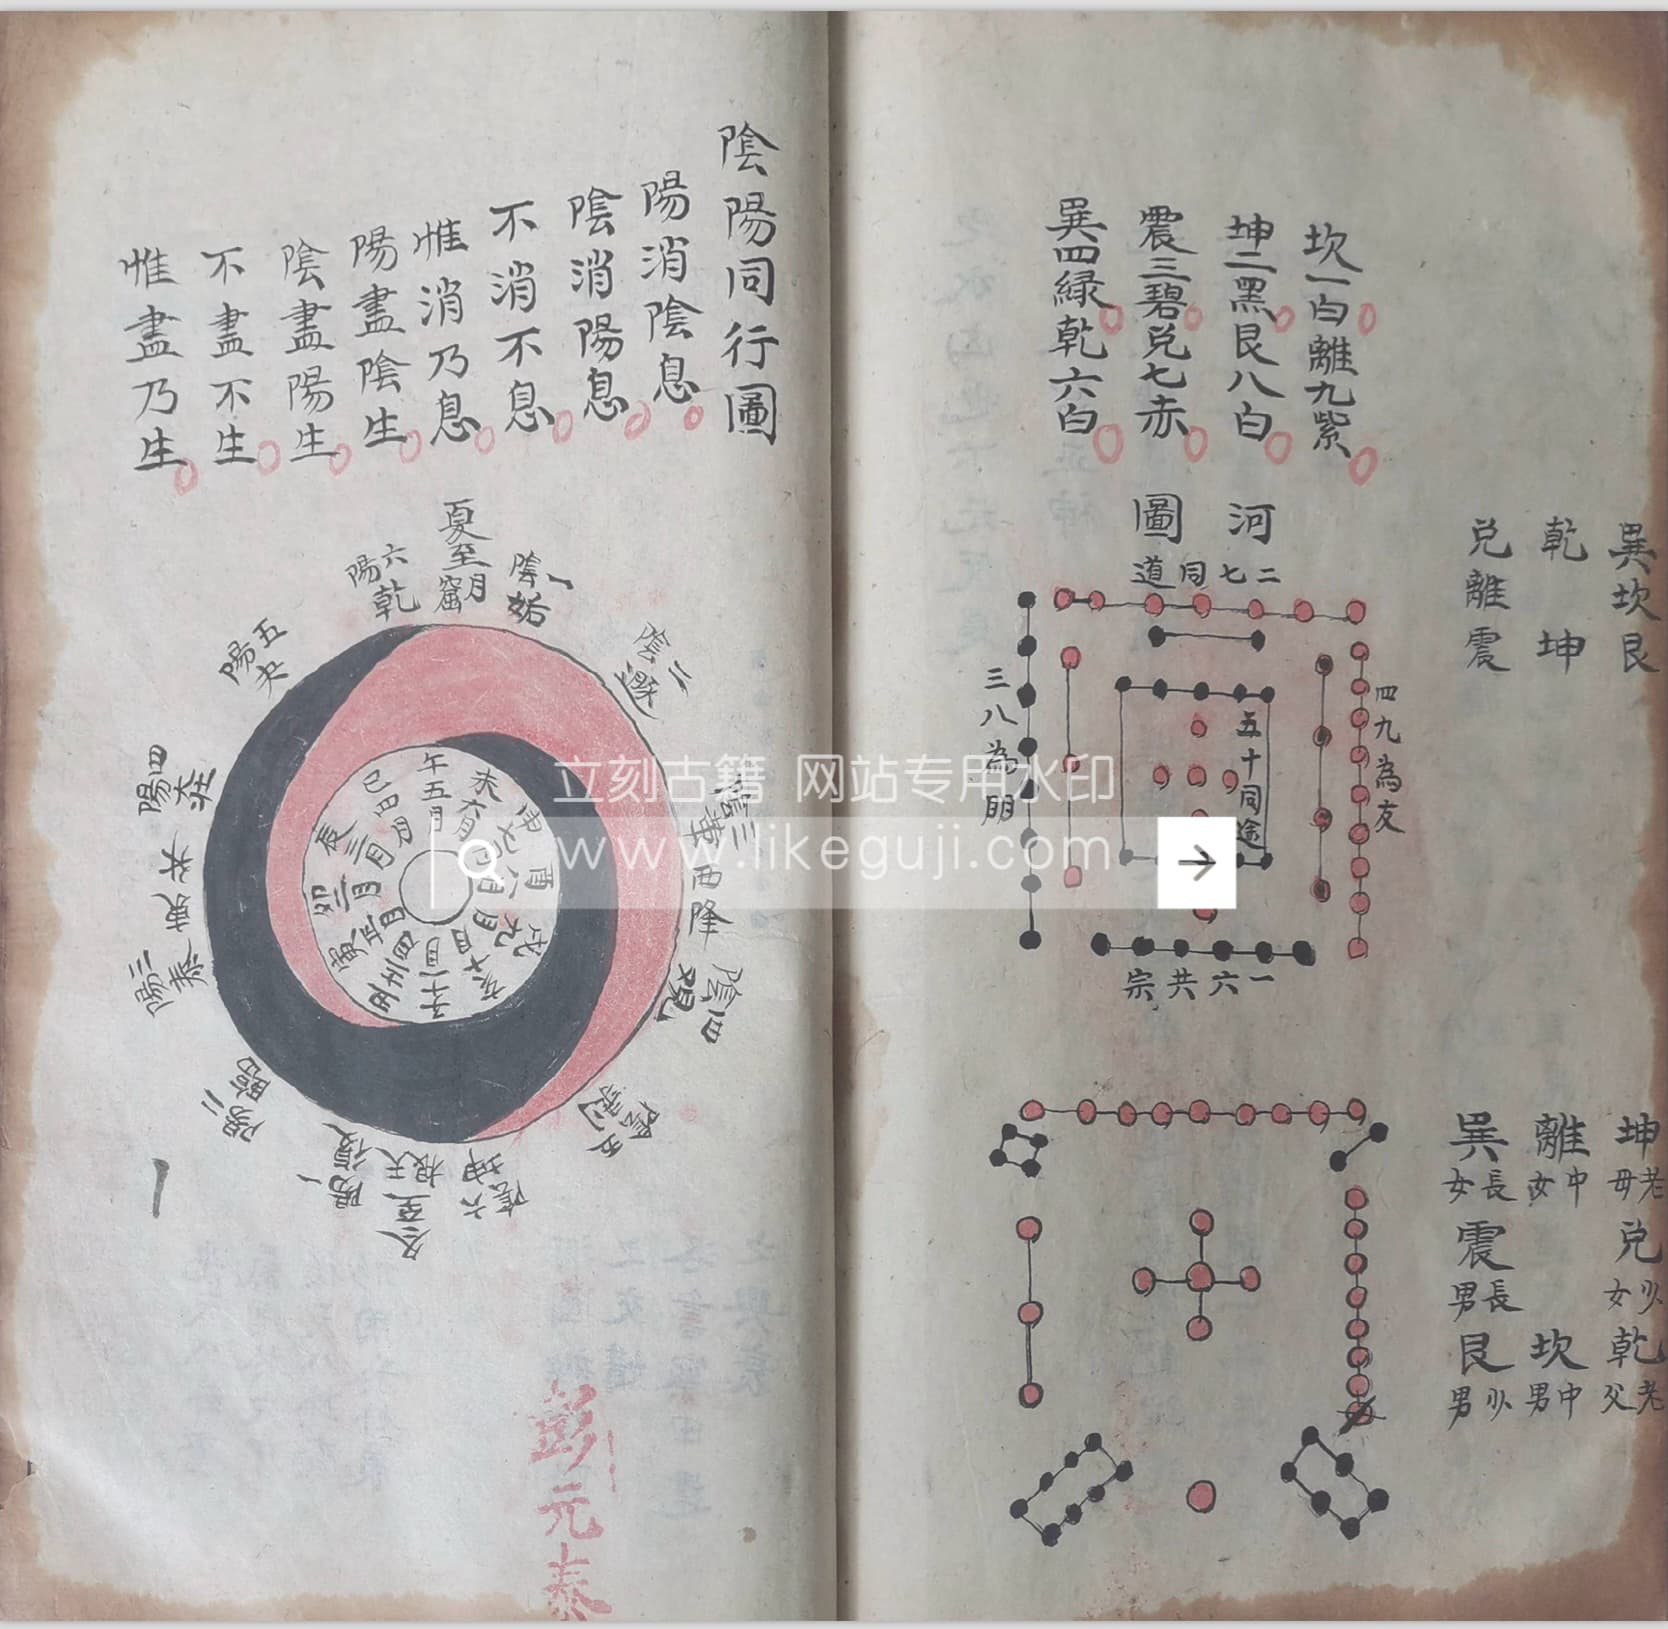 坎一白離九紫
坤二黑艮八白
震三碧兌七赤
巽四緑乾六白
巽坎艮
乾坤
兌離震
河圖
二七同道
三八為朋
四九為友
五十同途
一六共宗
坤老母
兌少女
乾老父
離中女
坎中男
巽長女
震長男
艮少男
陰陽同行圖
陽消陰息
陰消陽息
不消不息
惟消乃息
陽盡陰生
陰盡陽生
不盡不生
惟盡乃生
夏至
月窟
一陰姤
二陰
三陰
酉降
四陰觀
五陰剝
六陰坤
天根
冬至
一陽復
二陽臨
三陽泰
四陽大壯
五陽夬
六陽乾
午五月
未六月
申七月
酉八月
戌九月
亥十月
子十一月
丑十二月
寅正月
卯二月
辰三月
巳四月
彭元泰
立刻古籍 网站专用水印
www.likeguji.com